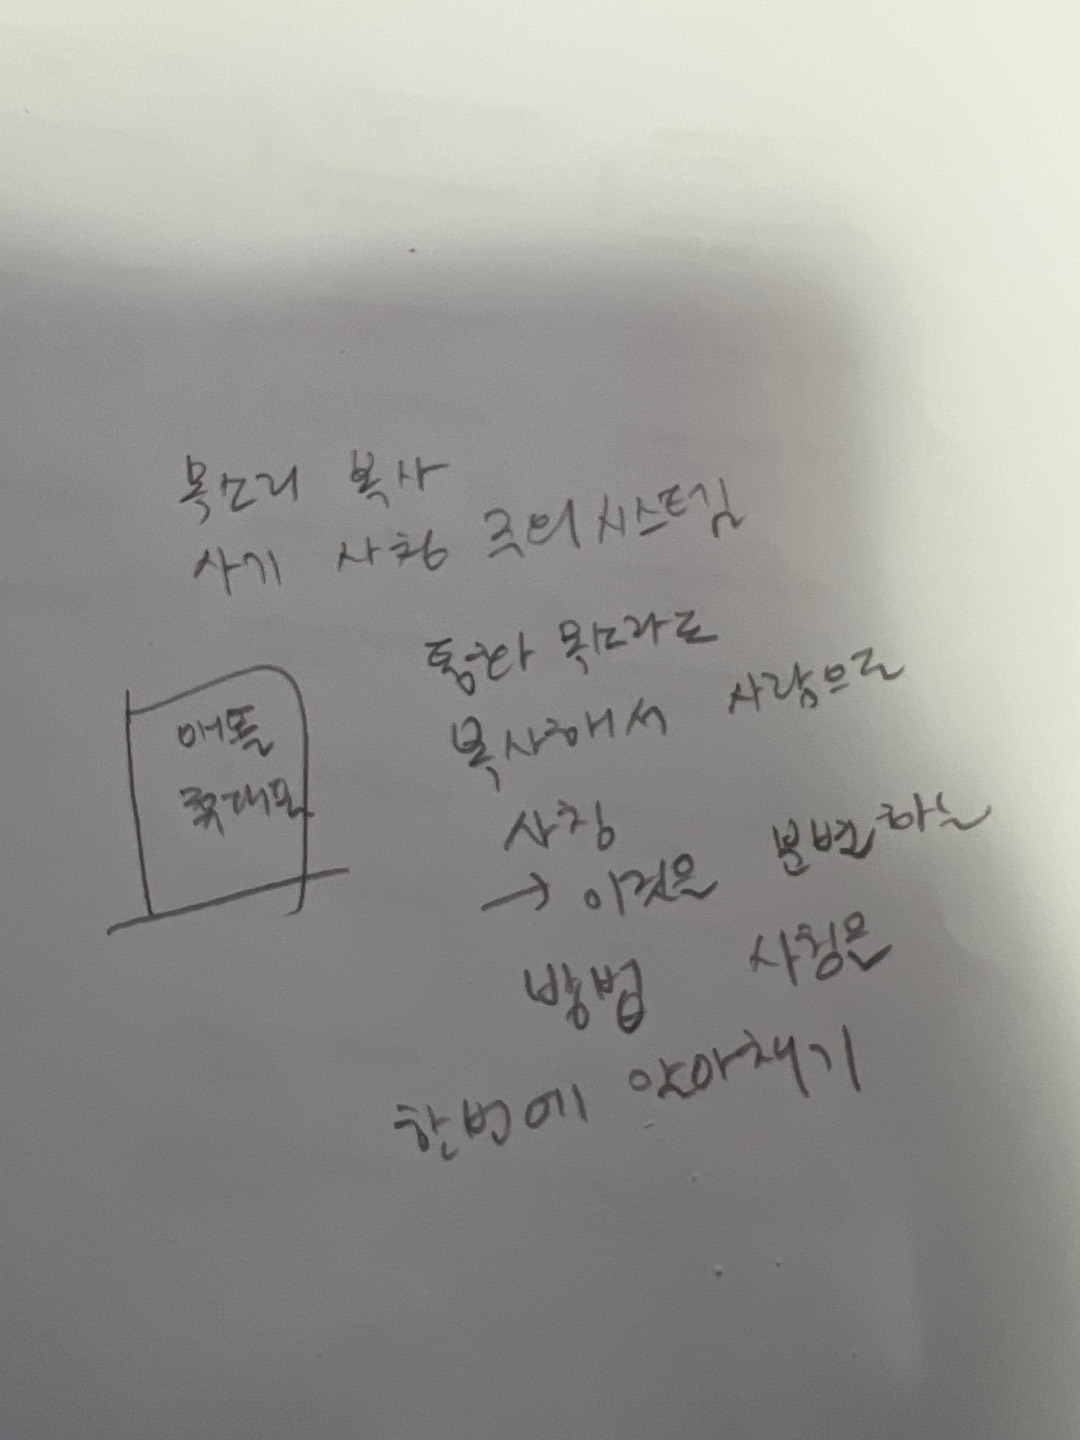 목소리 복사
사기 사칭 주의시스템
통화 목소리로
복사해서 사람으로
사칭
→ 이것은 분변하는
방법 사칭은
한번에 알아채기
애플